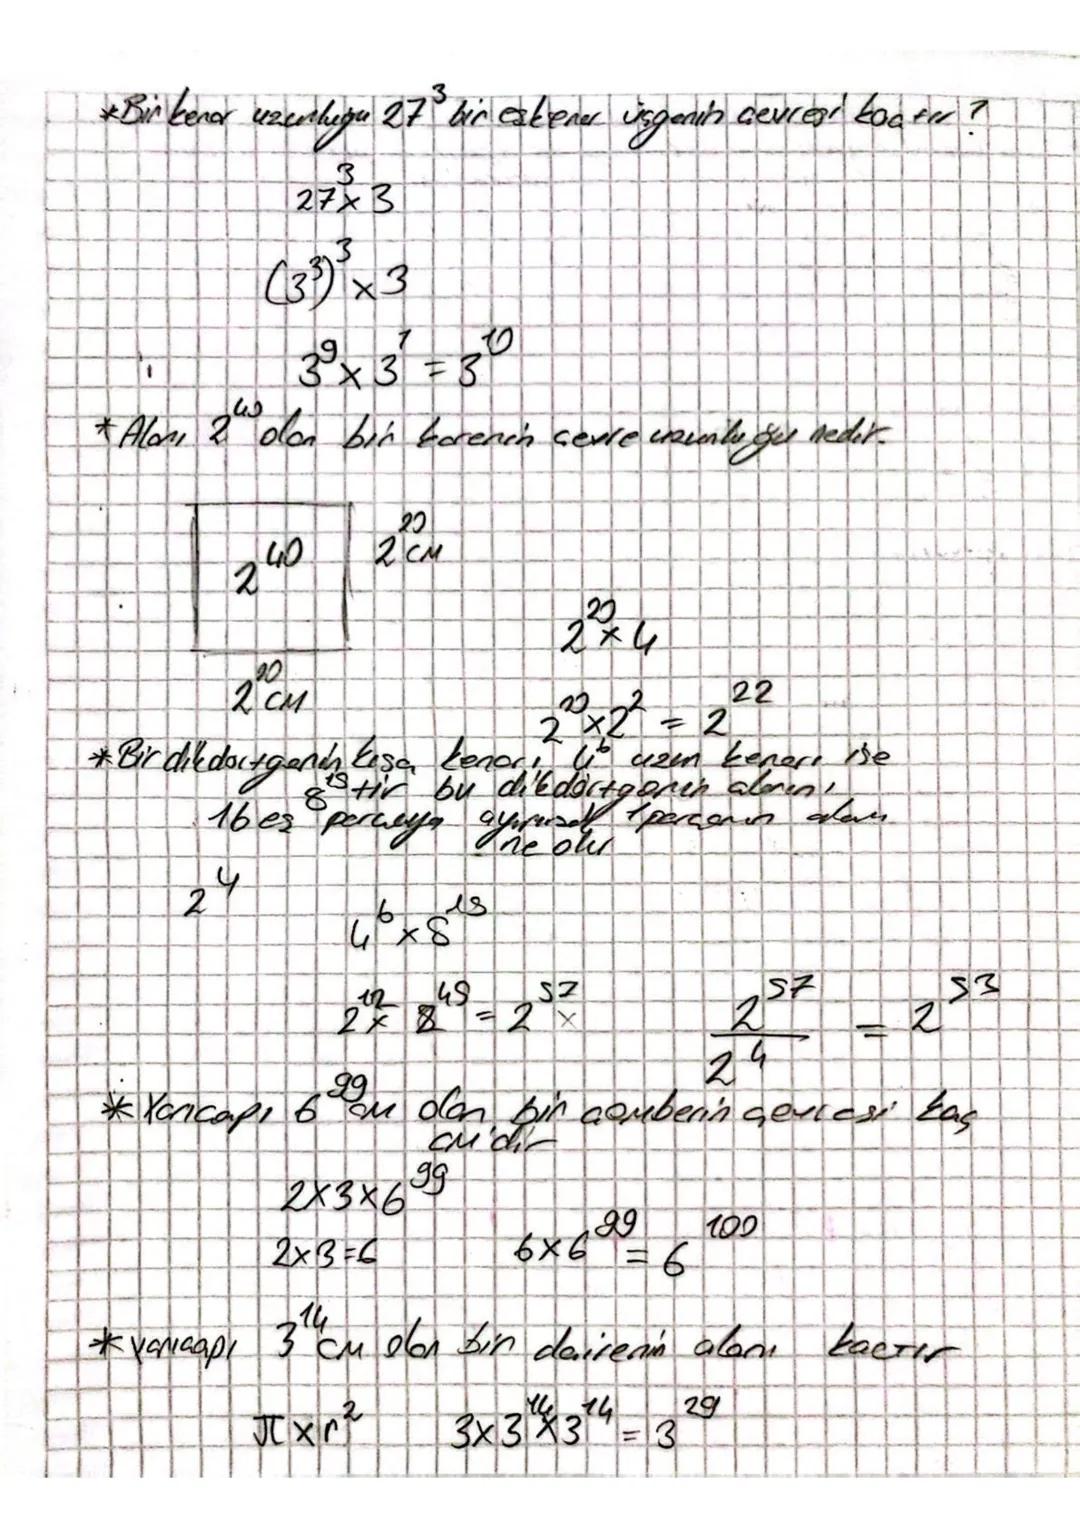 *Bir kenar uzunluğu 27³ bir eşkenar üçgenin çevresi kaçtır?
27³ x 3
(3³)³ x 3
3⁹ x 3¹ = 3¹⁰
*Alanı 2⁴⁰ olan bir karenin çevre uzunluğu nedir.
2⁴⁰ 2²⁰ cm
2²⁰ x 4
2²⁰ cm
2²⁰ x 2² = 2²²
*Bir dikdörtgenin kısa kenarı 4⁶ uzun kenarı ise
8¹⁵ tir bu dikdörtgenin alanını
16 eş parçaya ayırırsak 1 parçanın alanı
ne olur
2⁴
4⁶ x 8¹⁵
2¹² x 2⁴⁵ = 2⁵⁷ 2⁵⁷/2⁴ = 2⁵³
*Yarıçapı 6⁹⁹ cm olan bir çemberin çevresi kaç
cm'dir
2x3x6⁹⁹
2x3=6 6x6⁹⁹ = 6¹⁰⁰
*yarıçapı 3¹⁴ cm olan bir dairenin alanı kaçtır
π x r² 3x3¹⁴x3¹⁴ = 3²⁹